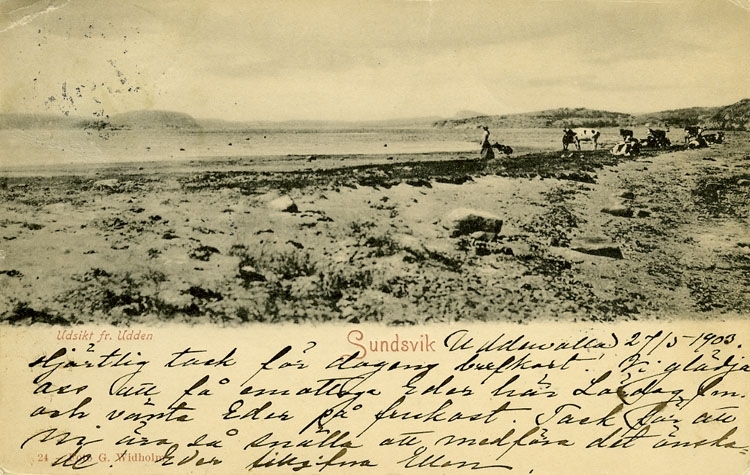 Udsikt fr. Udden
Sundsvik
Uddevalla 27/5-1903.
Hjärtlig tack för dagens brefkort. Vi glädja
oss att få emottaga Eder här Lördag fm.
och vänta Eder på frukost. Tack för att
Ni äro så snälla att medföra det önska-
de. Eder Ellen
24 Foto G. Widholm